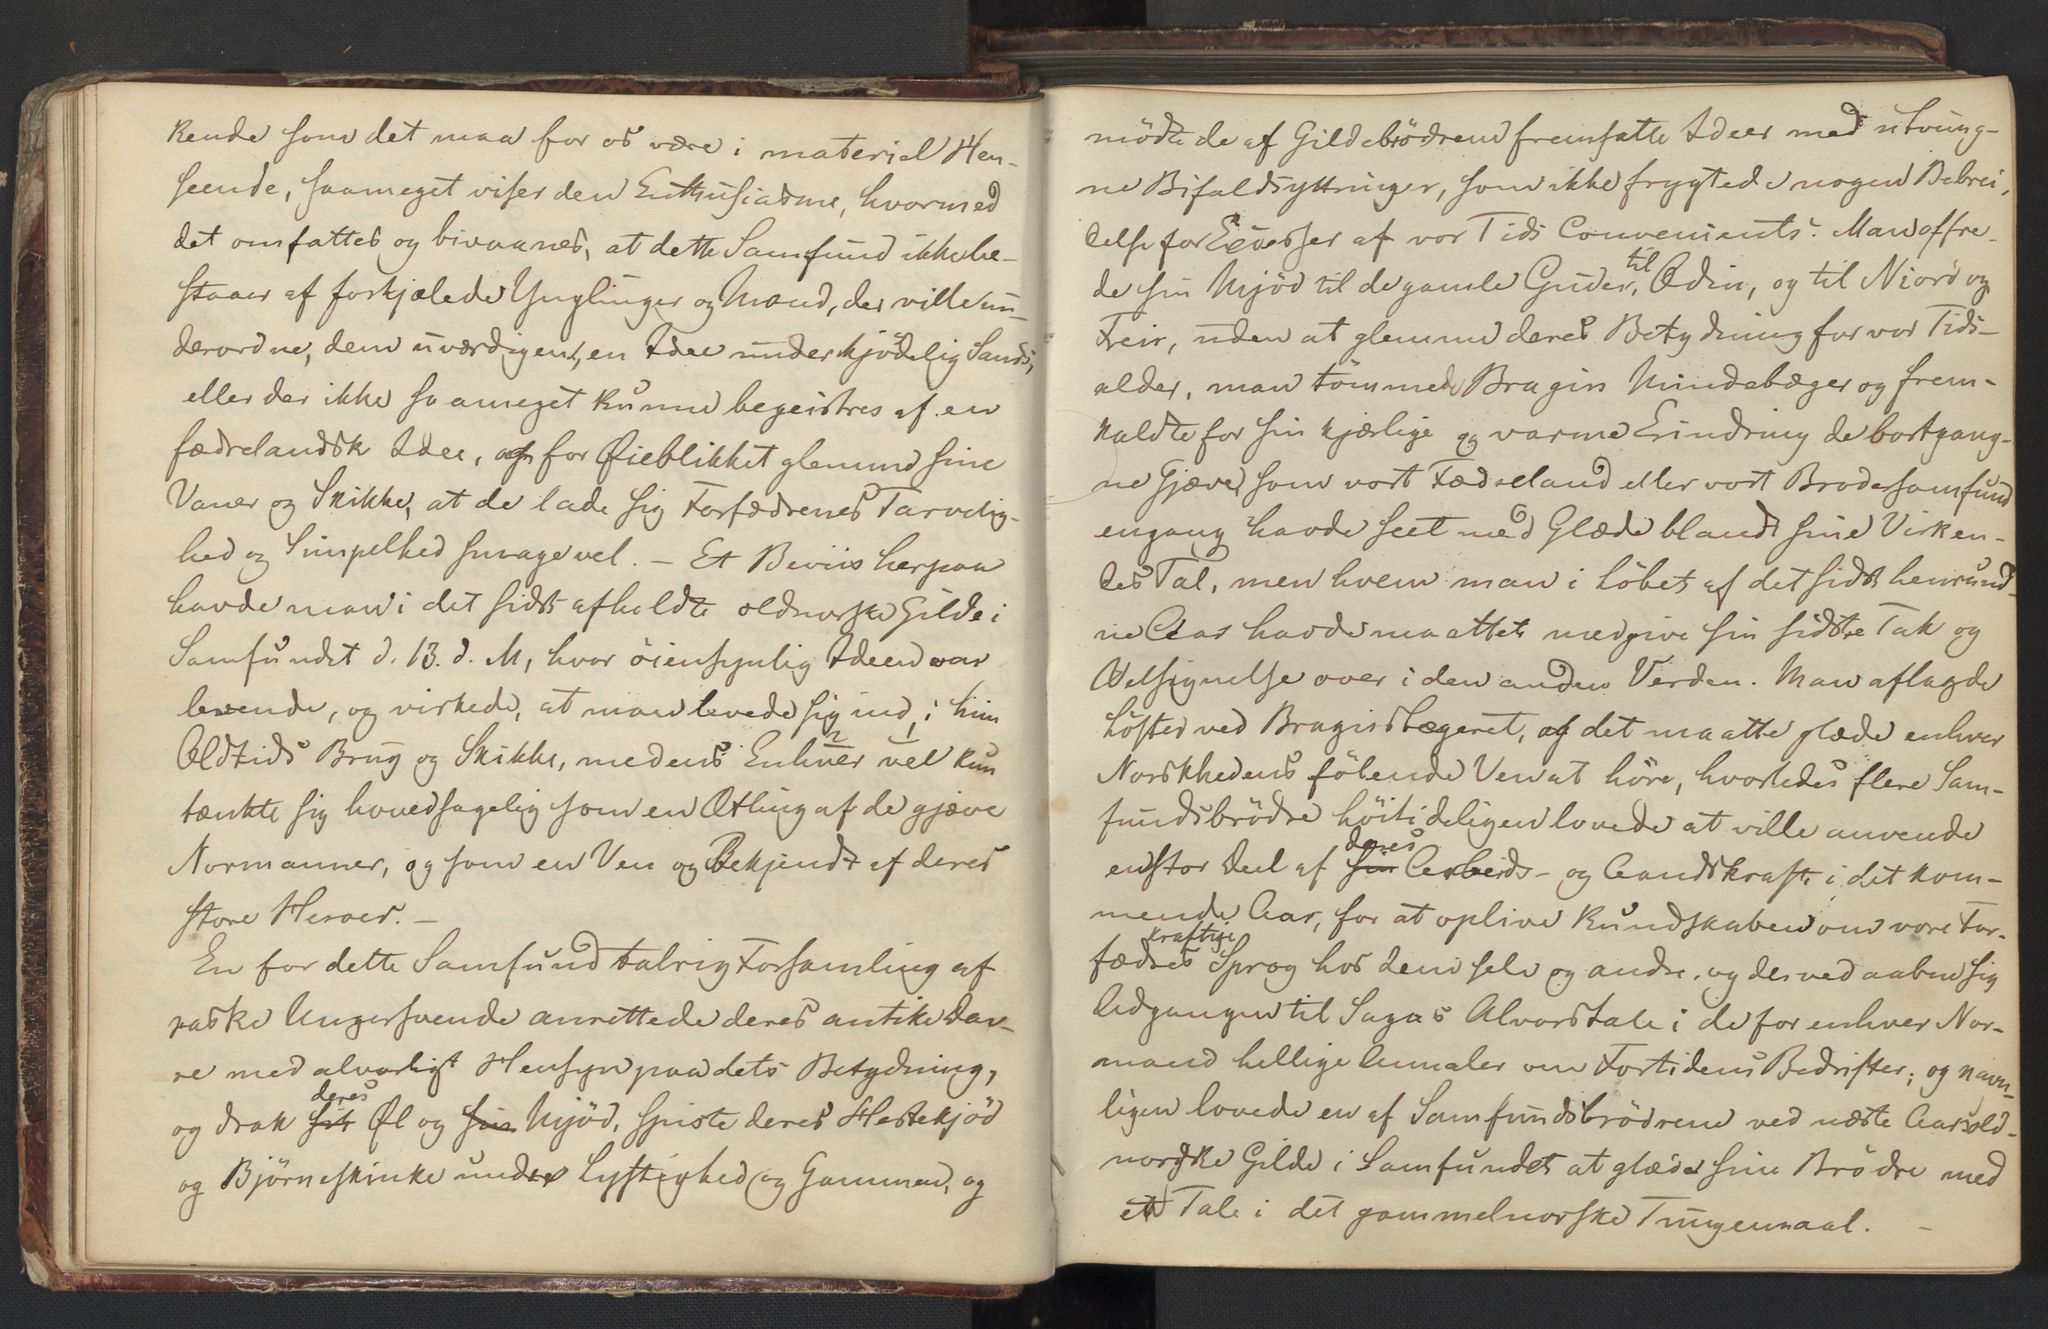 kende som det maa for os være i materiel Hen-
seende, saameget viser den Enthusiasme, hvormed
det omfattes og bivaanes, at dette Samfund ikke be-
staaer af forkjælede Ynglinger og Mænd, der ville un-
derordne, dem uværdigen, en Idee under kjødelig Sands,
eller der ikke saameget kunne begeistres af en
fædrelandsk Idee, og for Øieblikket glemme sine
Vaner og Skikke, at de lade sig Forfædrenes Tarvelig-
hed og Simpelhed smage vel. – Et Beviis herpaa
havde man i det sidst afholdte oldnorske Gilde i
Samfundet d. 13. d. M, hvor öiensynlig Ideen var
levende, og virkede, at man levede sig ind i hiin
Oldtids Brug og Skikke, medens Enhver vel kun
tænkte sig hovedsagelig som en Ætling af de gjæve
Normanner, og som en Ven og Bekjendt af deres
store Heroer. –
En for dette Samfund talrig Forsamling af
raske Ungersvende anrettede deres antike Dav-
re med alvorligt Hensyn paa dets Betydning,
og drak sit deres Øl og sin Mjöd, spiste deres Hestekjöd
og Björneskinke under Lystighed og Gammen, og
mödte de af Gildebrödrene fremsatte Ideer med utvung-
ne Bifaldsyttringer, som ikke frygtede nogen Bebrei-
delse for Excesser af vor Tids Convenients. Man offre-
de sin Mjöd til de gamle Guder, til Odin, og til Niord og
Freir, uden at glemme deres Betydning for vor Tids-
alder, man tömmede Bragis Mindebæger og frem-
kaldte for sin kjærlige og varme Erindring de bortgang-
ne Gjæve, som vort Fædreland eller vort Brodersamfund
engang havde seet med Glæde blandt sine Virken-
des Tal, men hvem man i Löbet af det sidst henrund-
ne Aar havde maattet medgive sin sidste Tak og
Velsignelse over i den anden Verden. Man aflagde
Löfter ved Bragisbægeret, og det maatte glæde enhver
Norskhedens fölende Ven at höre, hvorledes flere Sam-
fundsbrödre höitideligen lovede at ville anvende
en stor Deel af sin deres Arbeids- og Aandskraft i det kom-
mende Aar, for at oplive Kundskaben om vore For-
fædres kraftige Sprog hos dem selv og andre, og derved aabne sig
Adgangen til Sagas Alvorstale i de for enhver Nor-
mand hellige Annaler om Fortidens Bedrifter; og navn-
ligen lovede en af Samfundsbrödrene ved næste Aars old-
norske Gilde i Samfundet at glæde sine Brödre med
en Tale i det gammelnorske Tungemaal. –